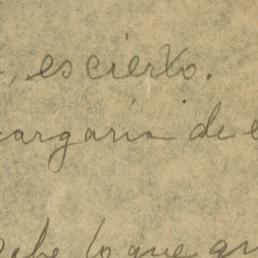 , es cierto.
cargaría de
sabe lo que